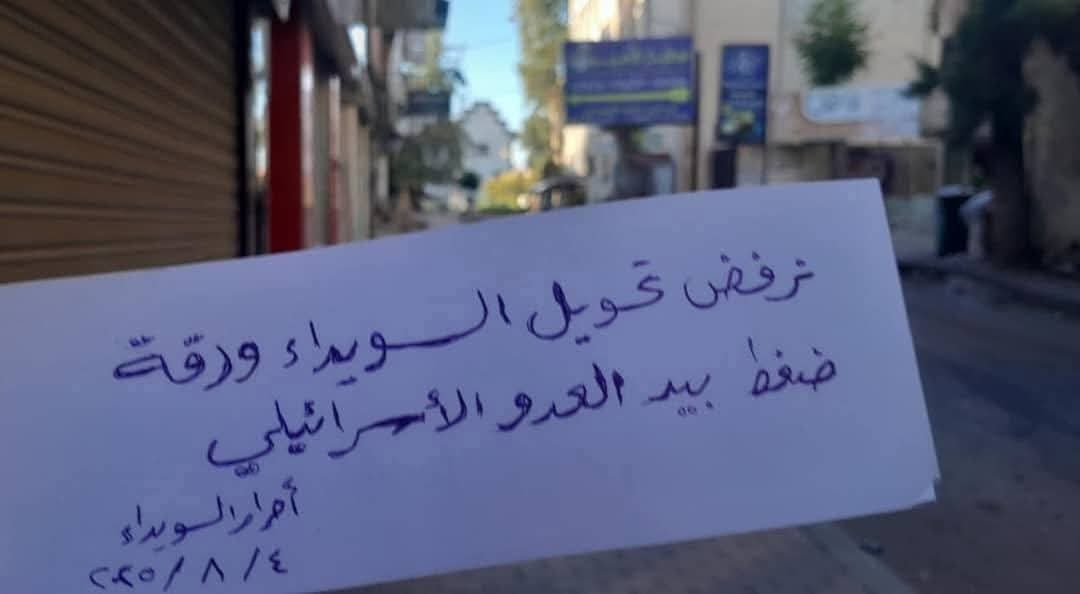 نرفض تحويل السويداء ورقة
ضغط بيد العدو الأسرائيلي
أحرار السويداء
٢٠٢٥/٨/٤